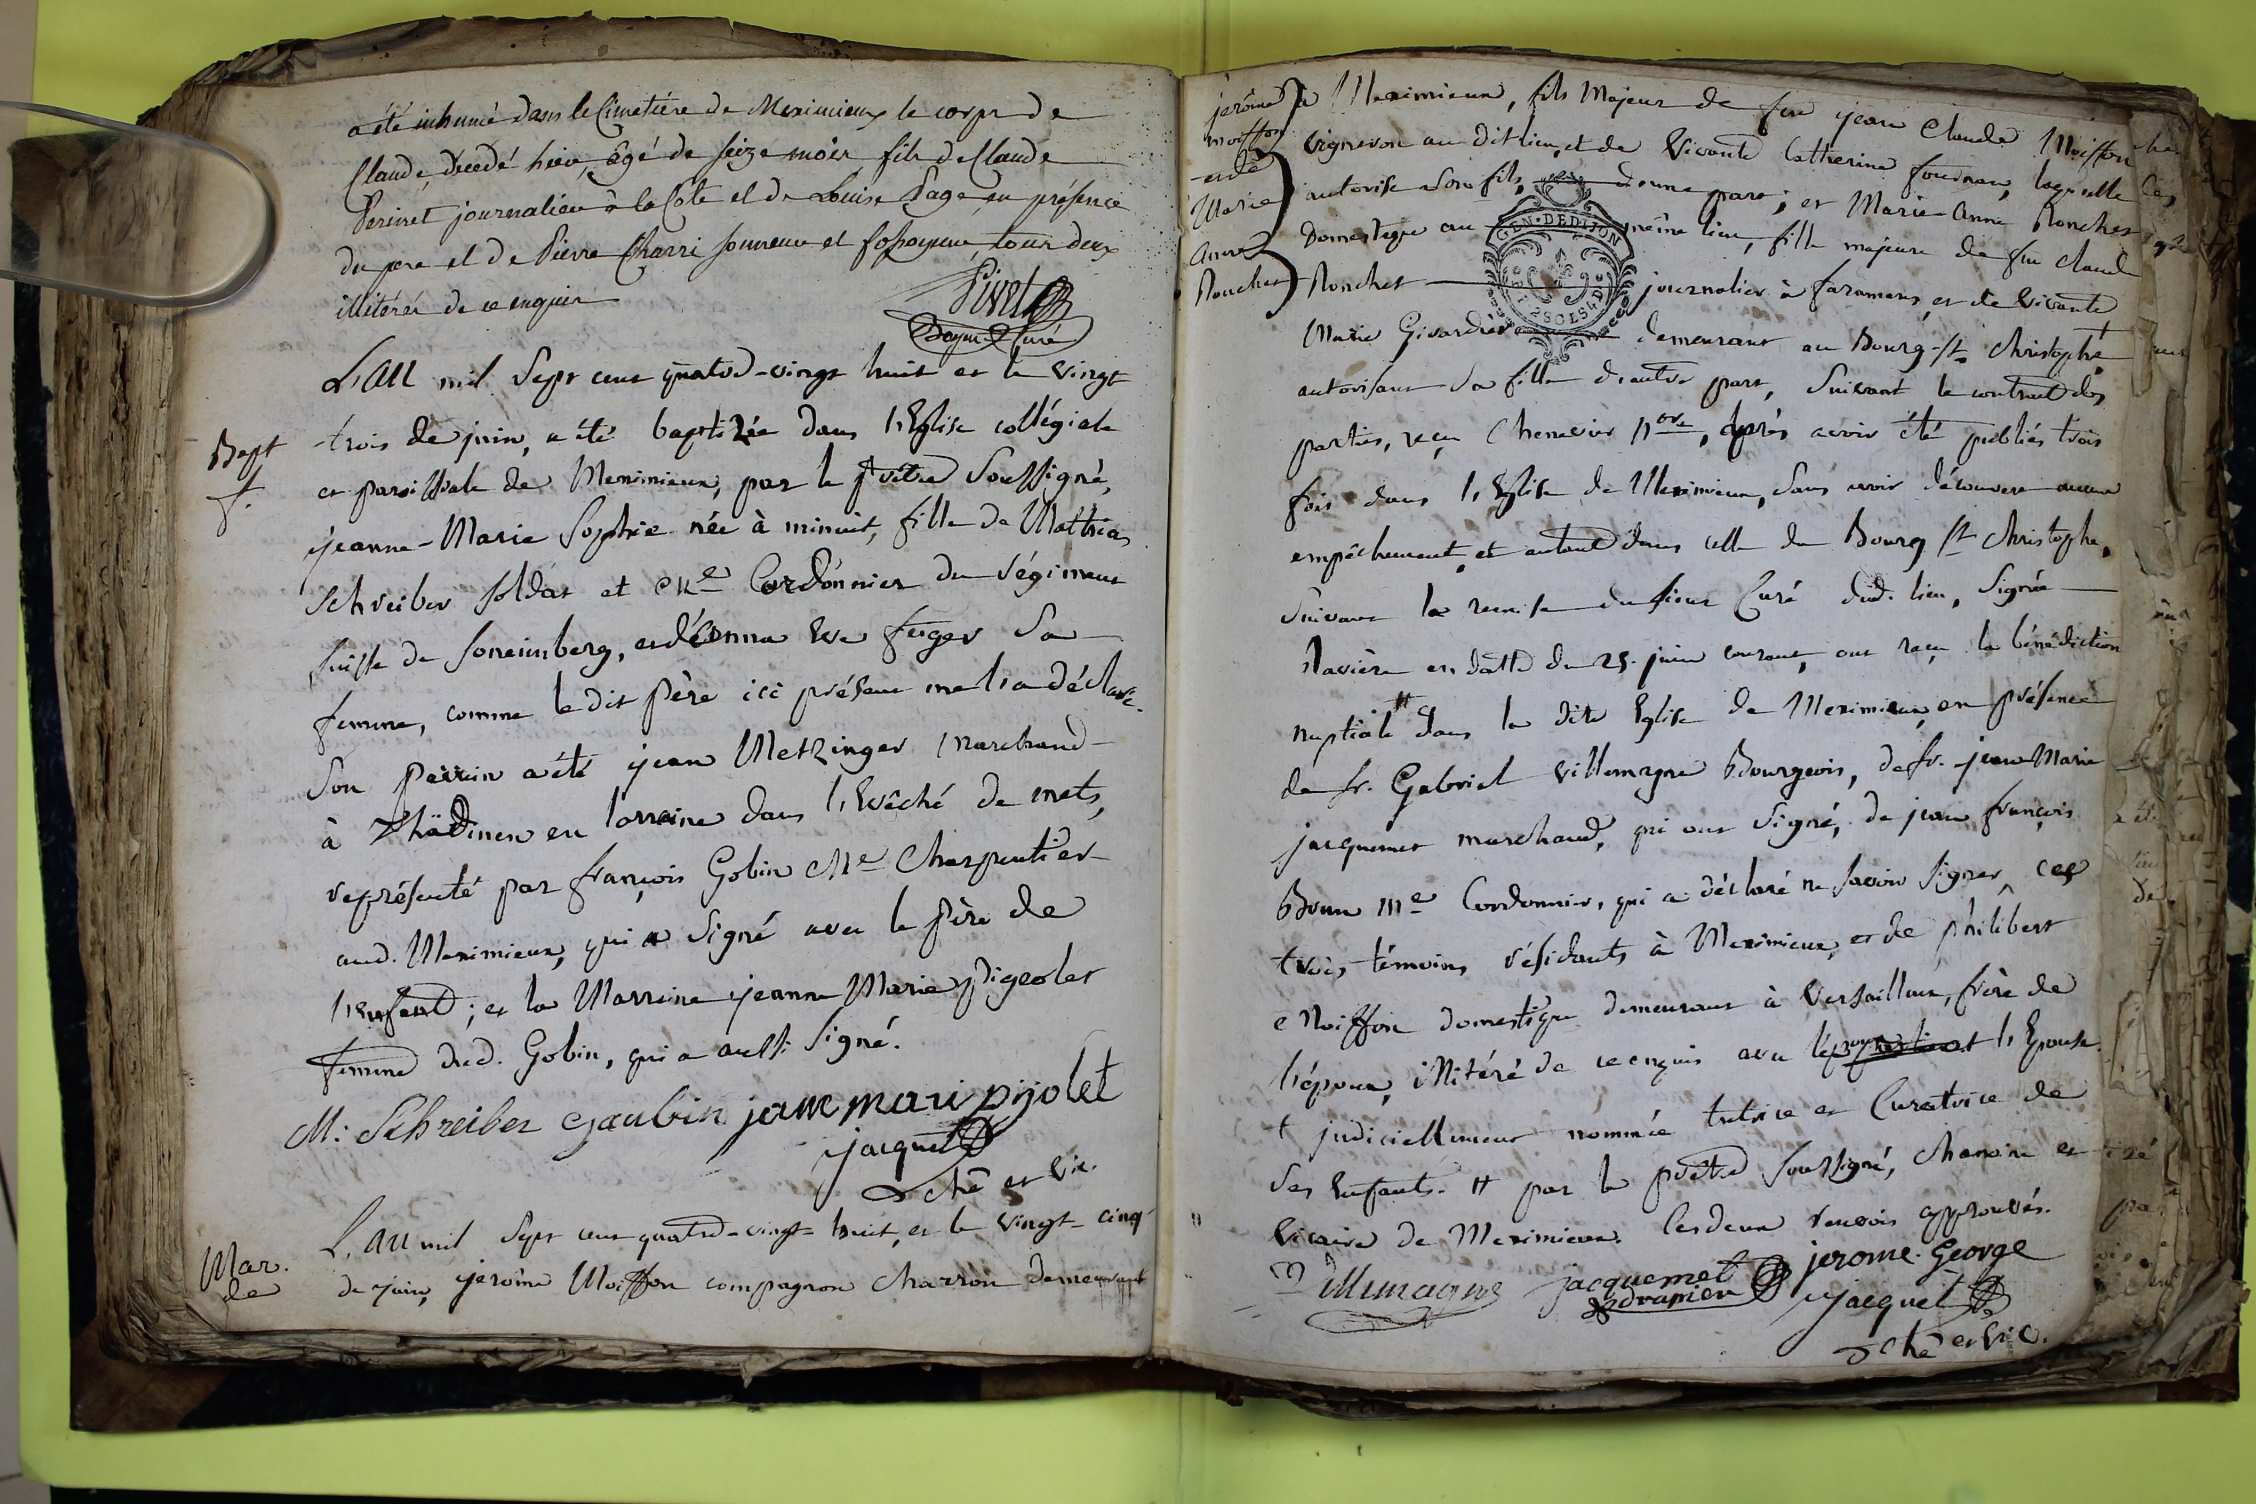 a été inhumé dans le Cimetière de Meximieux le corps de
Claude, décedé hier, âgé de seize mois fils de Claude
Perinet journalier à la Côte et de Louise Page en présence
du pere et de Pierre Charri sonneur et fossoyeur, tous deux
illitérés de ce enquis
Pivet
Doyen & Curé
L'an mil sept cent quatre-vingt huit et le vingt
Bapt
trois de juin, a été baptizée dans l'Eglise collégiale
f.
et paroissiale de Meximieux, par le prêtre soussigné,
jeanne-Marie Sophie née à minuit, fille de Mathias
Schreiber soldat et Me Cordonnier du régiment
suisse de Soneimberg, et d'Anna Eve fuger sa
femme, comme le dit Père ici présent me l'a déclaré.
Son parrin a été jean Metzinger marchand
à en lorraine dans l'Evêché de mets,
représenté par françois Gobin Me Charpentier
aud. Meximieux, qui a signé avec le père de
l'enfant; et la Marraine jeanne Marie Pigeolet
femme dud. Gobin, qui a aussi signé.
M: Schreiber Gaubin jane mari pijolet
jacquet
che et vic.
L'an mil sept cent quatre-vingt-huit, et le vingt-cinq
Mar.
de
de juin, jerôme Moiffon compagnon charron demeurant
jerôme
moiffon
et de
Marie
anne
Ronchet
à Meximieux, fils Majeur de feu jean Claude Moiffon
vigneron au dit lieu, et de vivante Catherine laquelle
autorise son fils, d'une part; et Marie-Anne Ronchet
Domestique au même lieu, fille majeure de feu claude
Ronchet journalier à faramans, et de vivante
GEN. DE DIJON
2 SOLS 4 D
Marie Girardier demeurant au Bourg-st christophe,
autorisant sa fille d'autre part, suivant le contrat des
parties, reçu Chenevier nore, après avoir été publiés trois
fois dans l'Eglise de Meximieux, sans avoir découvert aucun
empêchement, et autant dans celle du Bourg st christophe,
suivant la remise du sieur Curé dud. lieu, signée
Ravière en datte du 25. juin courant, ont reçu la bénédiction
nuptiale # dans la dite Eglise de Meximieux, en présence
de sr. Gabriel villemagne Bourgeois, de sr. jean Marie
jacquemet marchand, qui ont signé, de jean françois
me Cordonnier, qui a déclaré ne savoir signer, ces
trois témoins résidants à Meximieux, et de philibert
Moiffon domestique demeurant à Versailleux, frère de
l'époux, illitéré de ce enquis avec l'Epouse.
† judiciellement nommée tutrice et Curatrice de
ses Enfants. # par le prêtre soussigné, chanoine et
vicaire de Meximieux. Les deux renvois approuvés.
Villemagne jacquemet jerome. George
drapier jacquet
che et vic.